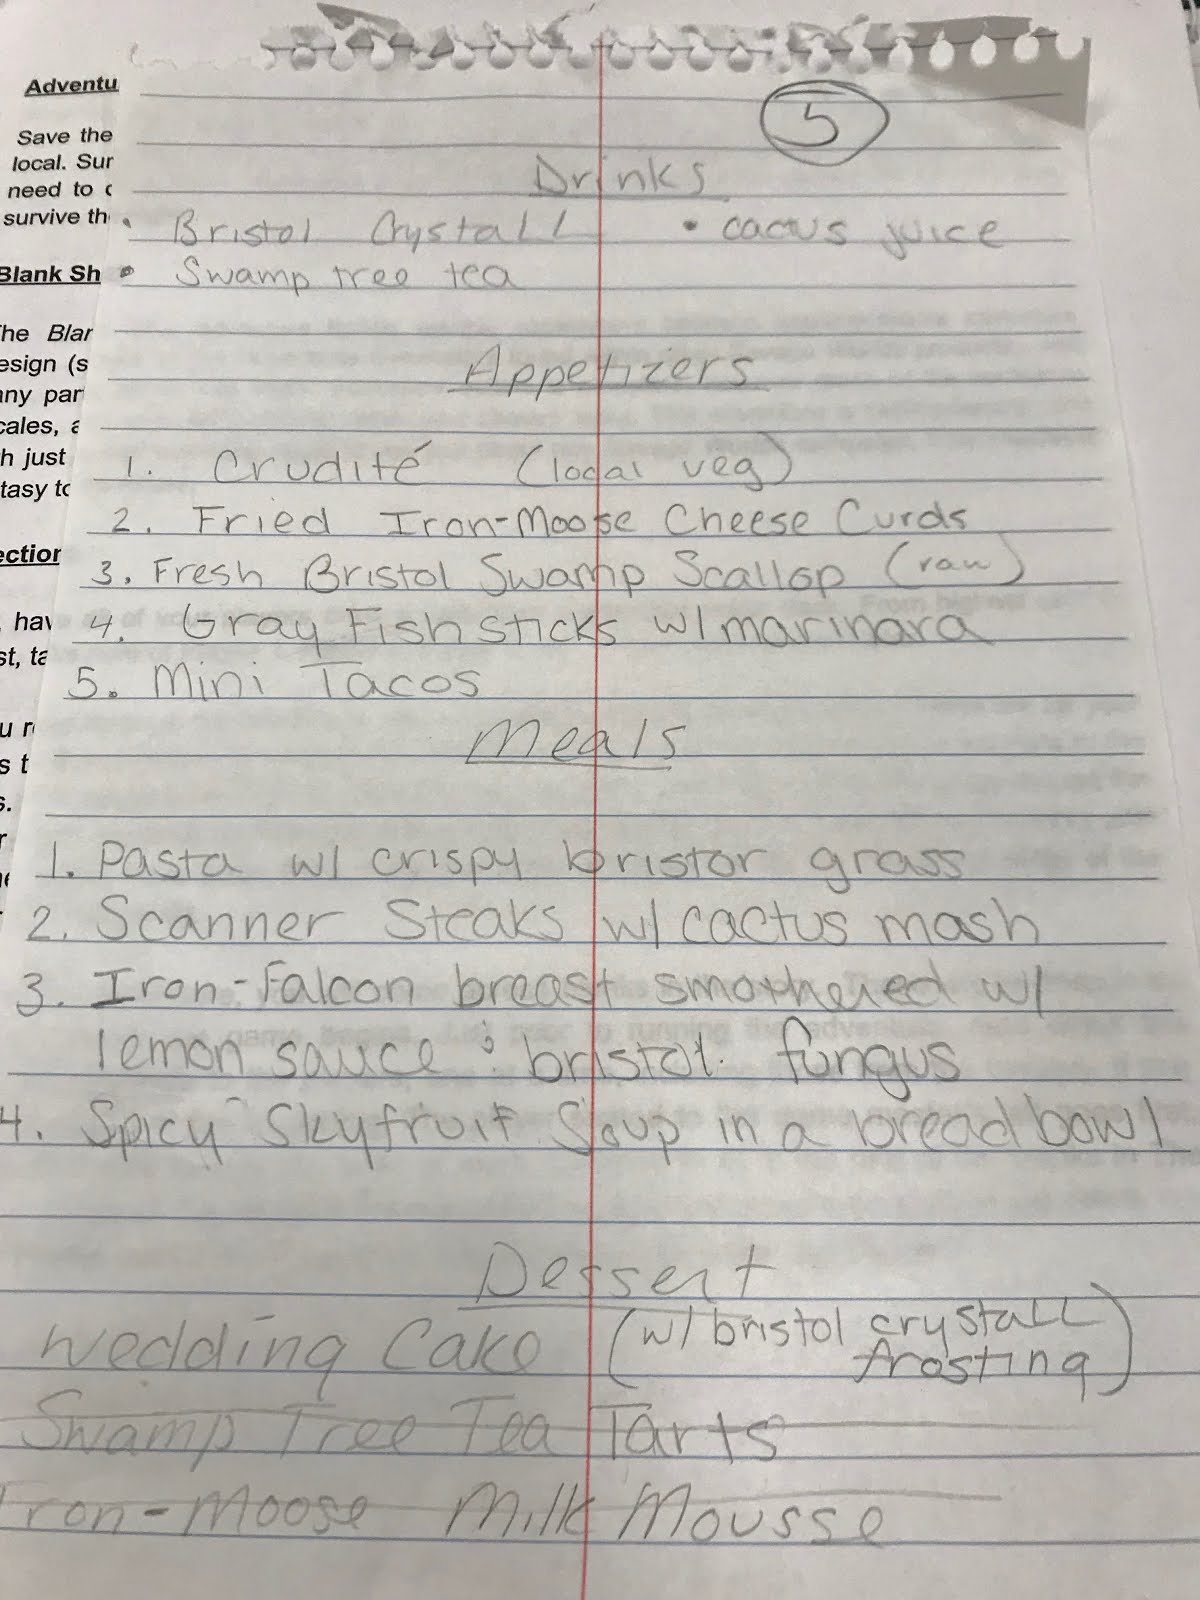 Adventu
Save the
local. Sur
need to
survive th
Blank Sh
The Blar
esign (s
any par
cales, a
h just
tasy to
ection
, hav
st, ta
u r
s t
s.
5
Drinks
• Bristol Crystall • cactus juice
• Swamp tree tea
Appetizers
1. Crudité (local veg)
2. Fried Iron-Moose Cheese Curds
3. Fresh Bristol Swamp Scallop (raw)
4. Gray Fish sticks w/ marinara
5. Mini Tacos
Meals
1. Pasta w/ crispy bristor grass
2. Scanner Steaks w/ cactus mash
3. Iron-Falcon breast smothered w/
lemon sauce & bristol fungus
4. Spicy Skyfruit Soup in a bread bowl
Dessert
Wedding Cake (w/ bristol crystall
frosting)
Swamp Tree Tea Tarts
Iron-Moose Milk Mousse